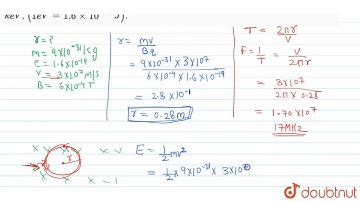 keV. (1eV = 1.6 × 10⁻¹⁹ J).
r = ?
m = 9×10⁻³¹ kg
e = 1.6×10⁻¹⁹
V = 3×10⁷ m/s
B = 6×10⁻⁴ T
r = mV / Bq
= 9×10⁻³¹ × 3×10⁷ / 6×10⁻⁴ × 1.6×10⁻¹⁹
= 2.8 × 10⁻¹
r = 0.28m
T = 2πr / V
f = 1/T = V / 2πr
= 3×10⁷ / 2π × 0.28
= 1.70 × 10⁷
17MHz
x x x x
r
x x x
E = 1/2 mv²
= 1/2 × 9×10⁻³¹ × 3×10
doubtnut